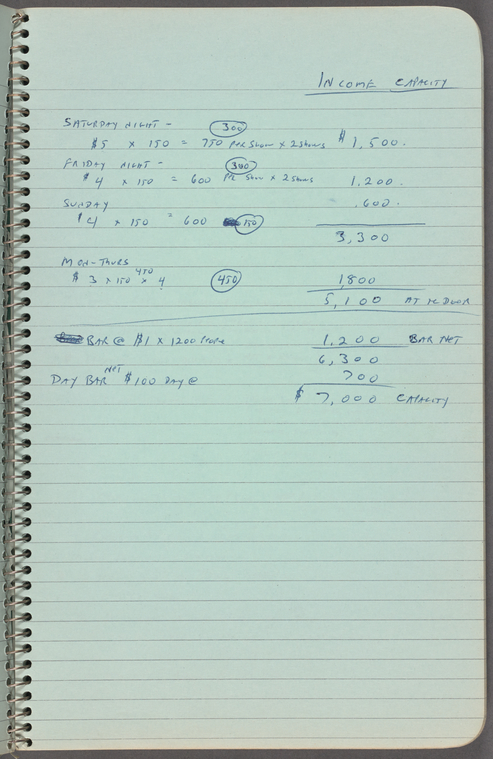 INCOME CAPACITY
SATURDAY NIGHT - 300
$5 x 150 = 750 PER SHOW x 2 SHOWS $1,500.
FRIDAY NIGHT - 300
$4 x 150 = 600 PER SHOW x 2 SHOWS 1,200.
SUNDAY .600.
$4 x 150 = 600 150
3,300
MON-THURS
450
$3 x 150 x 4 450 1,800
5,100 AT THE DOOR
BAR @ $1 x 1200 PEOPLE 1,200 BAR NET
6,300
NET
DAY BAR $100 DAY @ 700
$ 7,000 CAPACITY